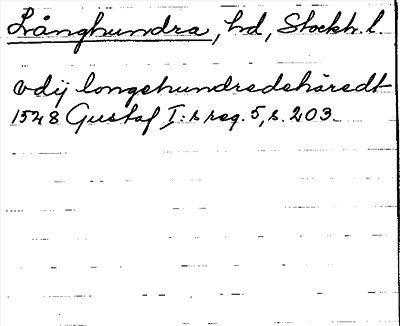 Långhundra, hd, Stockh. l.
vdij longehundredehäredt
1528 Gustaf I:s reg. 5, s. 203